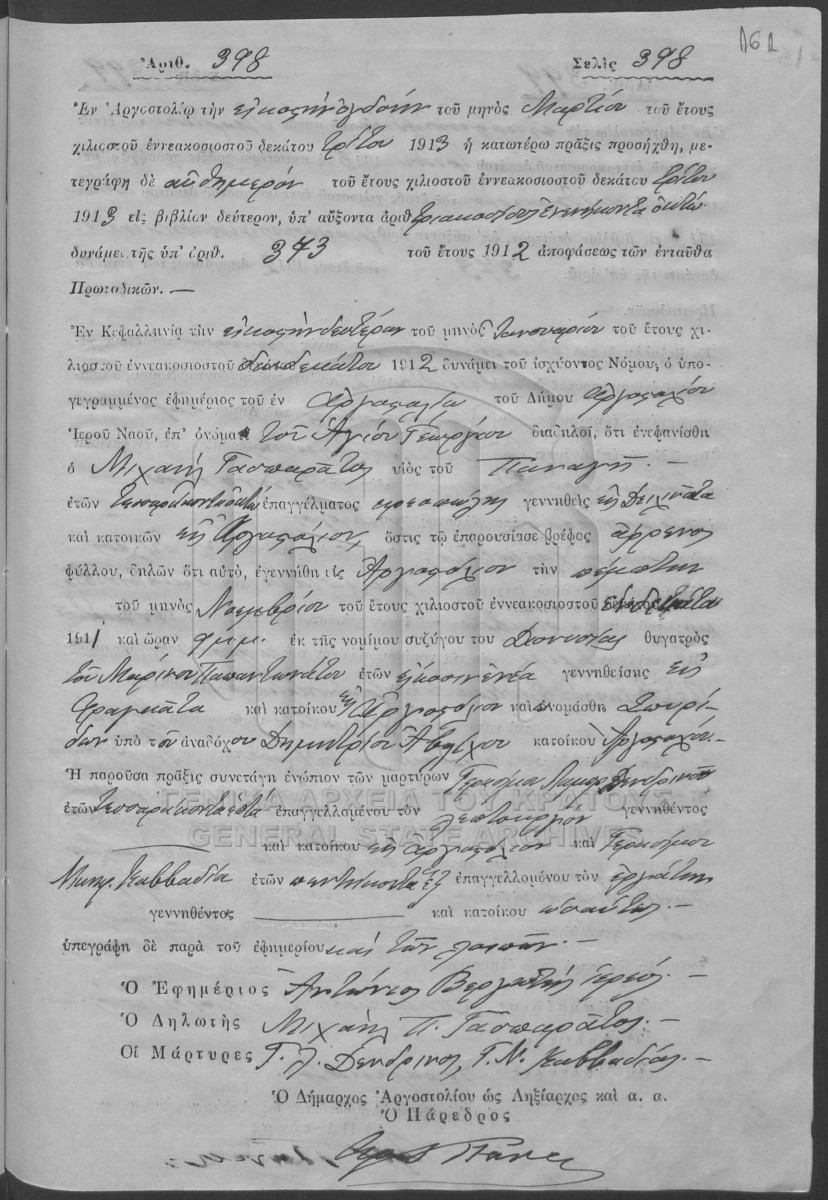 161
Ἀριθ. 398 Σελὶς 398
Ἐν Ἀργοστολίῳ τὴν εἰκοστὴν ὀγδόην τοῦ μηνὸς Μαρτίου τοῦ ἔτους
χιλιοστοῦ ἐννεακοσιοστοῦ δεκάτου τρίτου 1913 ἡ κατωτέρω πρᾶξις προσήχθη, με-
τεγράφη δὲ αὐθημερὸν τοῦ ἔτους χιλιοστοῦ ἐννεακοσιοστοῦ δεκάτου τρίτου
1913 εἰς βιβλίον δεύτερον, ὑπ' αὔξοντα ἀριθ. τριακόσια ἐνενήκοντα ὀκτώ
δυνάμει τῆς ὑπ' ἀριθ. 373 τοῦ ἔτους 1912 ἀποφάσεως τῶν ἐνταῦθα
Πρωτοδικῶν.—
Ἐν Κεφαλληνίᾳ τὴν εἰκοστὴν δευτέραν τοῦ μηνὸς Ἰανουαρίου τοῦ ἔτους χι-
λιοστοῦ ἐννεακοσιοστοῦ δωδεκάτου 1912 δυνάμει τοῦ ἰσχύοντος Νόμου, ὁ ὑπο-
γεγραμμένος ἐφημέριος τοῦ ἐν Ἀργοστολίῳ τοῦ Δήμου Ἀργοστολίου
Ἱεροῦ Ναοῦ, ἐπ' ὀνόματι τοῦ Ἁγίου Γεωργίου διαδηλοῖ, ὅτι ἐνεφανίσθη
ὁ Μιχαὴλ Γασπαρᾶτος υἱὸς τοῦ Παναγῆ.—
ἐτῶν ἐπαγγέλματος γεννηθεὶς εἰς Δειλινᾶτα
καὶ κατοικῶν εἰς Ἀργοστόλιον, ὅστις τῷ ἐπαρουσίασε βρέφος ἄρρενος
φύλλου, δηλῶν ὅτι αὐτό, ἐγεννήθη εἰς Ἀργοστόλιον τὴν πέμπτην
τοῦ μηνὸς Νοεμβρίου τοῦ ἔτους χιλιοστοῦ ἐννεακοσιοστοῦ ἑνδεκάτου
1911 καὶ ὥραν μ.μ. ἐκ τῆς νομίμου συζύγου του Διονυσίας θυγατρὸς
τοῦ Μαρίνου Παπαντωνάτου ἐτῶν εἰκοσιεννέα γεννηθείσης εἰς
Φραγκᾶτα καὶ κατοίκου εἰς Ἀργοστόλιον καὶ ὠνομάσθη Σπυρί-
δων ὑπὸ τοῦ ἀναδόχου Δημητρίου κατοίκου Ἀργοστολίου.—
Ἡ παροῦσα πρᾶξις συνετάγη ἐνώπιον τῶν μαρτύρων Γερασίμου Δενδρινοῦ
ἐτῶν ἐπαγγελλομένου τὸν λεπτουργὸν γεννηθέντος
— καὶ κατοίκου εἰς Ἀργοστόλιον καὶ Γερασίμου
Καββαδία ἐτῶν πεντήκοντα ἓξ ἐπαγγελλομένου τὸν ἐργάτην
γεννηθέντος — καὶ κατοίκου ὡσαύτως.—
ὑπεγράφη δὲ παρὰ τοῦ ἐφημερίου καὶ τῶν λοιπῶν.—
Ὁ Ἐφημέριος Ἀντώνιος Βεργωτῆς ἱερεύς.—
Ὁ Δηλωτὴς Μιχαὴλ Π. Γασπαρᾶτος.—
Οἱ Μάρτυρες Γ. Λ. Δενδρινός, Γ. Ν. Καββαδίας.—
Ὁ Δήμαρχος Ἀργοστολίου ὡς Ληξίαρχος καὶ α. α.
Ὁ Πάρεδρος
ΓΕΝΙΚΑ ΑΡΧΕΙΑ ΤΟΥ ΚΡΑΤΟΥΣ
GENERAL STATE ARCHIVES